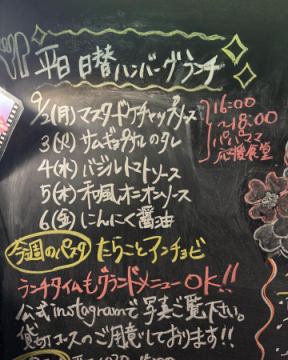 平日 日替ハンバーグランチ
9/2(月) マスタードケチャップソース
3(火) サムギョプサルのタレ
4(水) バジルトマトソース
5(木) 和風オニオンソース
6(金) にんにく醤油
16:00
~18:00
パパママ
応援食堂
今週のパスタ たらことアンチョビ
ランチタイムもグランドメニューOK!!
公式instagramで写真ご覧下さい。
貸切コースのご用意しております!!